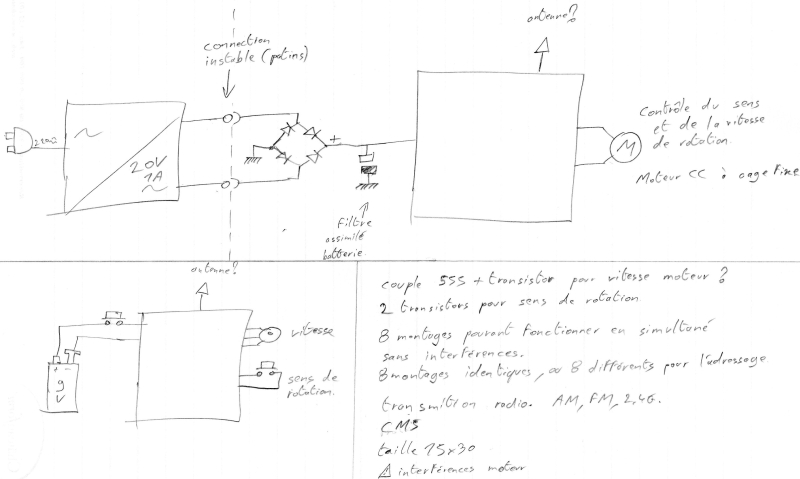 antenne?
connection
instable (patins)
Contrôle du sens
et de la vitesse
de rotation.
Moteur CC à cage Fixe
220V
20V
1A
~
+
M
Filtre
assimilé
batterie.
antenne?
vitesse
sens de
rotation.
+ -
9
V
couple 555 + transistor pour vitesse moteur?
2 transistors pour sens de rotation
8 montages pouvant fonctionner en simultané
sans interférences.
8 montages identiques, ou 8 différents pour l'adressage
transmition radio. AM, FM, 2,4G.
CMS
taille 15x30
⚠ interférences moteur